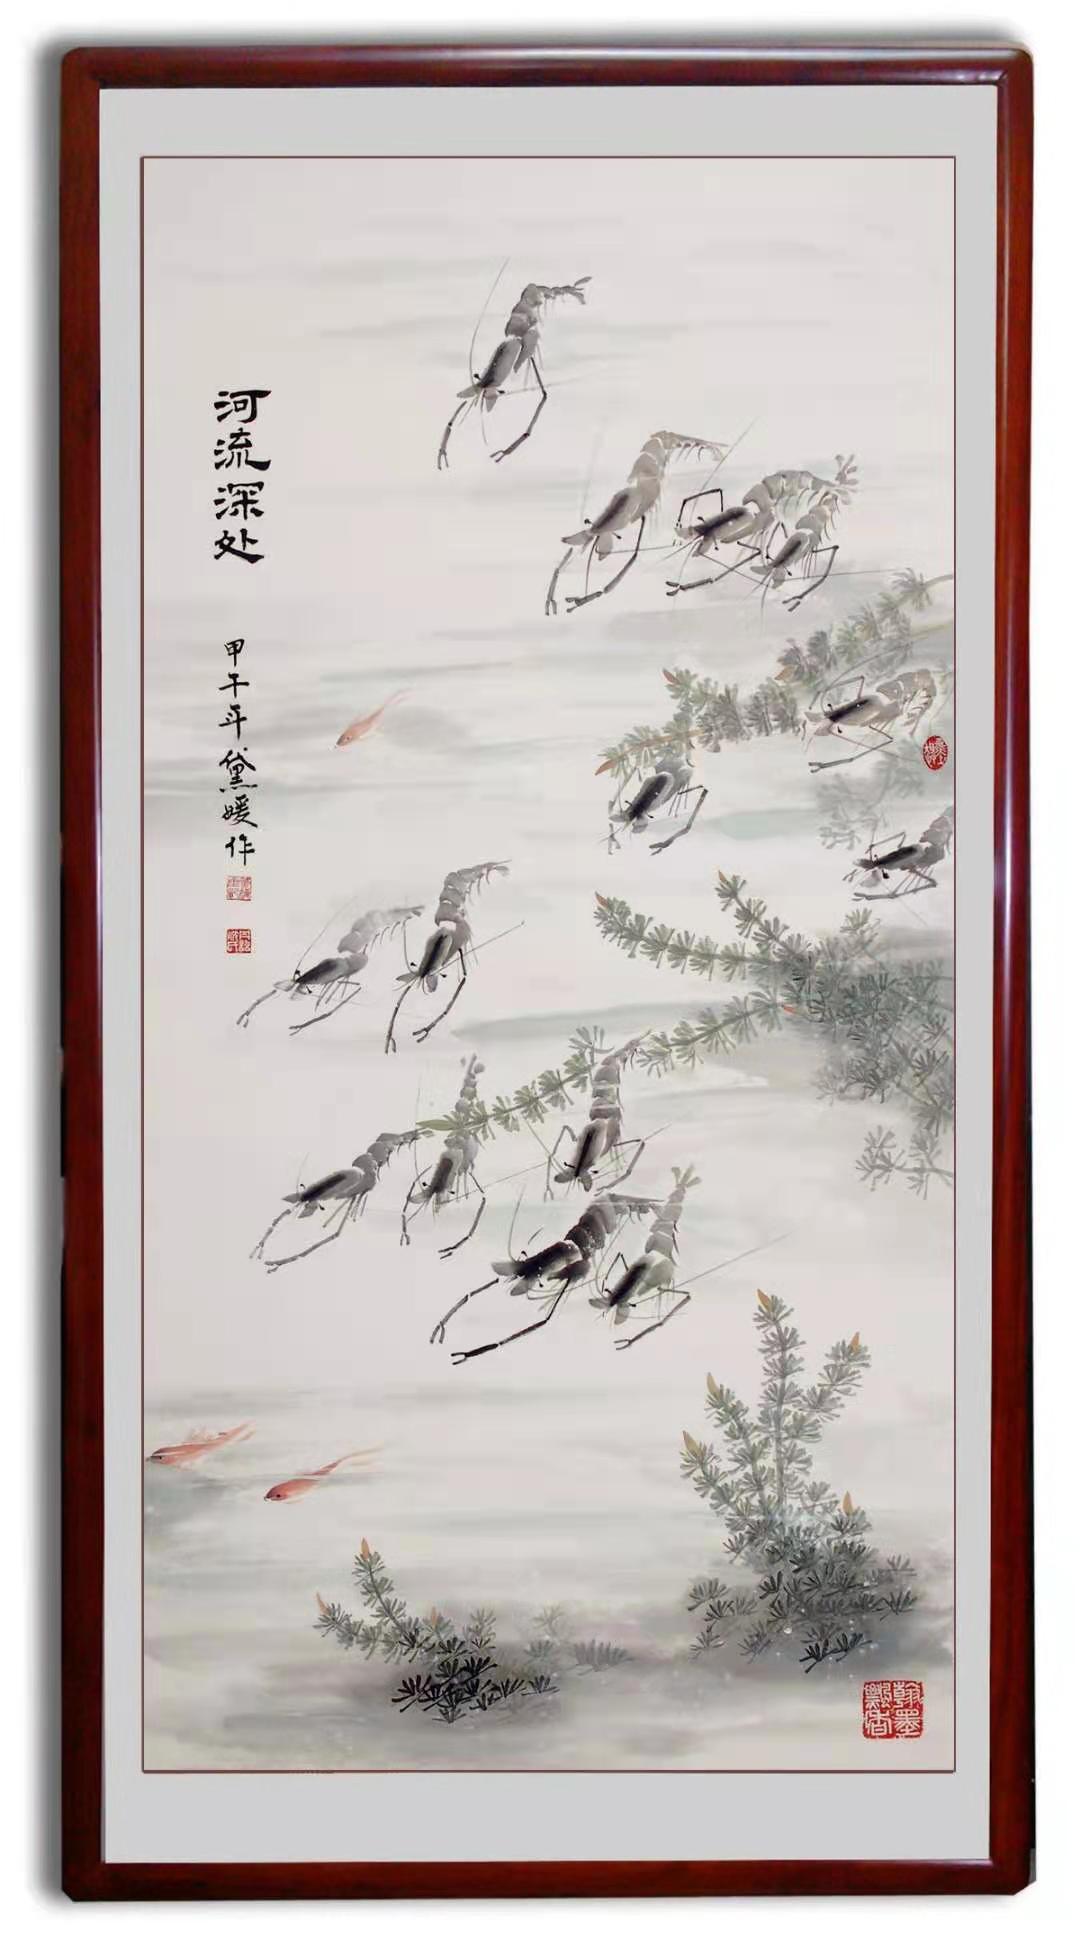 河流深处
甲午年黛媛作
翰墨飘香